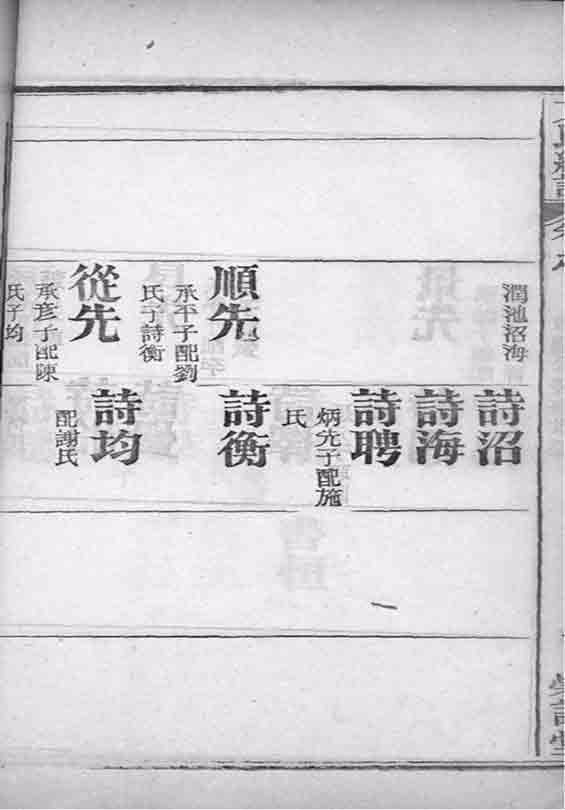 潤池沼海
順先
承平子配劉
氏子詩衡
從先
承彦子配陳
氏子均
詩沼
詩海
詩聘
炳先子配施
氏
詩衡
詩均
配謝氏